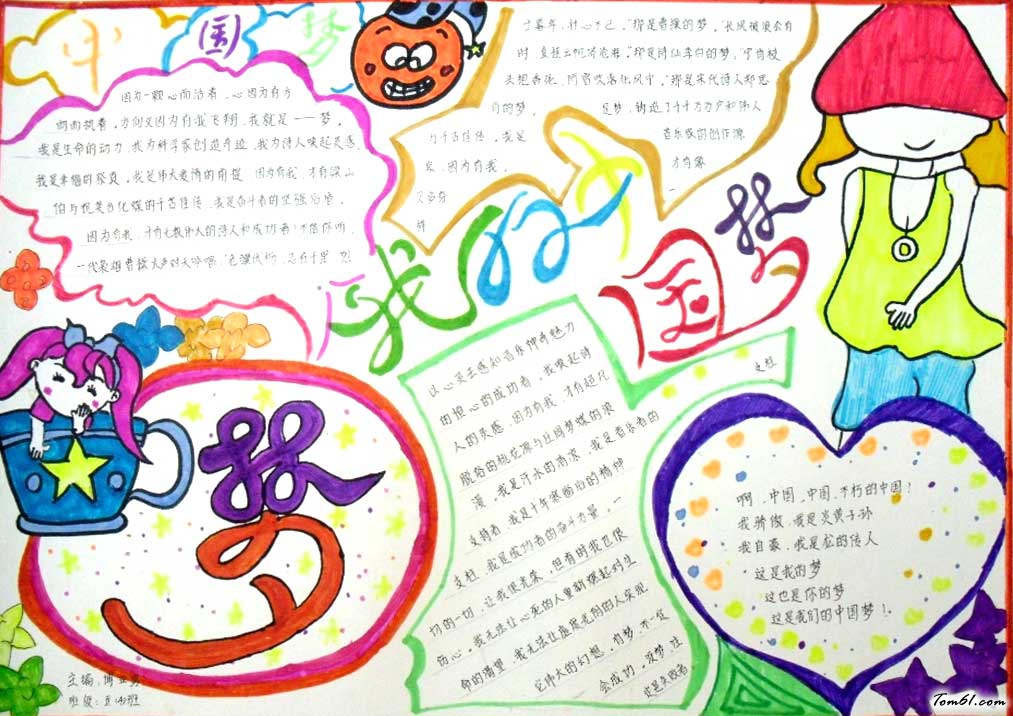 中国梦
因为一颗心而活着，心因为有方
向而执着，方向又因为有我飞翔，我就是——梦，
我是生命的动力，我为科学家创造奇迹，我为诗人唤起灵感
我是幸福的祭奠，我是伟大爱情的前提，因为有我，才有梁山
伯与祝英台化蝶的千古佳传，我是奋斗者的坚强后盾，
因为有我，才有无数伟大的诗人和成功者！不信你听，
一代枭雄曹操
士暮年，壮心不已，"那是曹操的梦，"长风破浪会有
时，直挂云帆济沧海，"那是诗仙李白的梦；"宁可枝
头抱香死，何曾吹落北风中，"那是宋代诗人郑思
肖的梦
是梦，铸造了千千万万
力千古佳传，我是
音乐家的创作源
泉，因为有我，
才有
我的中国梦
以心灵去感知音乐神奇魅力
的恒心的成功者，我唤起诗
人的灵感，因为有我，才有超凡
脱俗的桃花源与庄周梦蝶的浪
漫，我是汗水的前奏，我是音乐者的
支持者，我是十年寒窗后的精神
支柱，我是成功者的奋斗力量，一
切的一切，让我很光荣，但有时我也很
伤心，我无法让心死的人重新燃起对生
命的渴望，我无法让虚度光阴的人实现
它伟大的幻想，有梦，不一定
会成功，没梦，注
定是失败者
支柱
梦
啊，中国，中国，不朽的中国！
我骄傲，我是炎黄子孙
我自豪，我是龙的传人
这是我的梦
这也是你的梦
这是我们的中国梦！
主编：
班级：五(4)班
Tom61.com